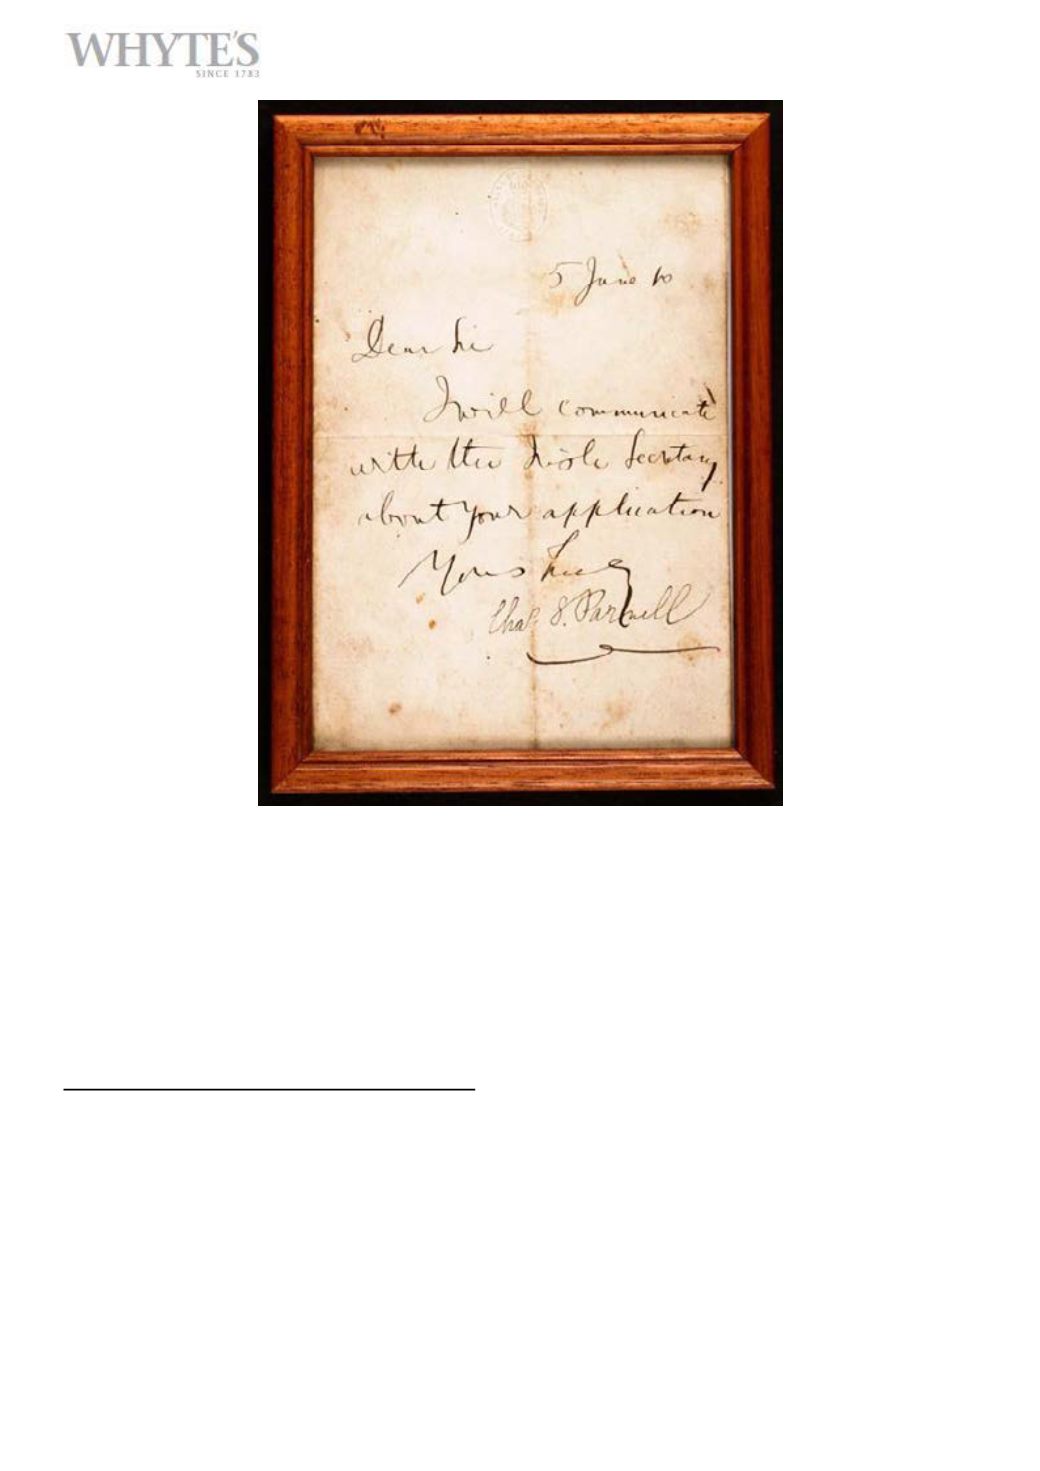 WHYTE'S
SINCE 1783
5 June
Dear Sir
I will communicate
with the Irish Secretary
about your application
Yours truly
Chas. S. Parnell